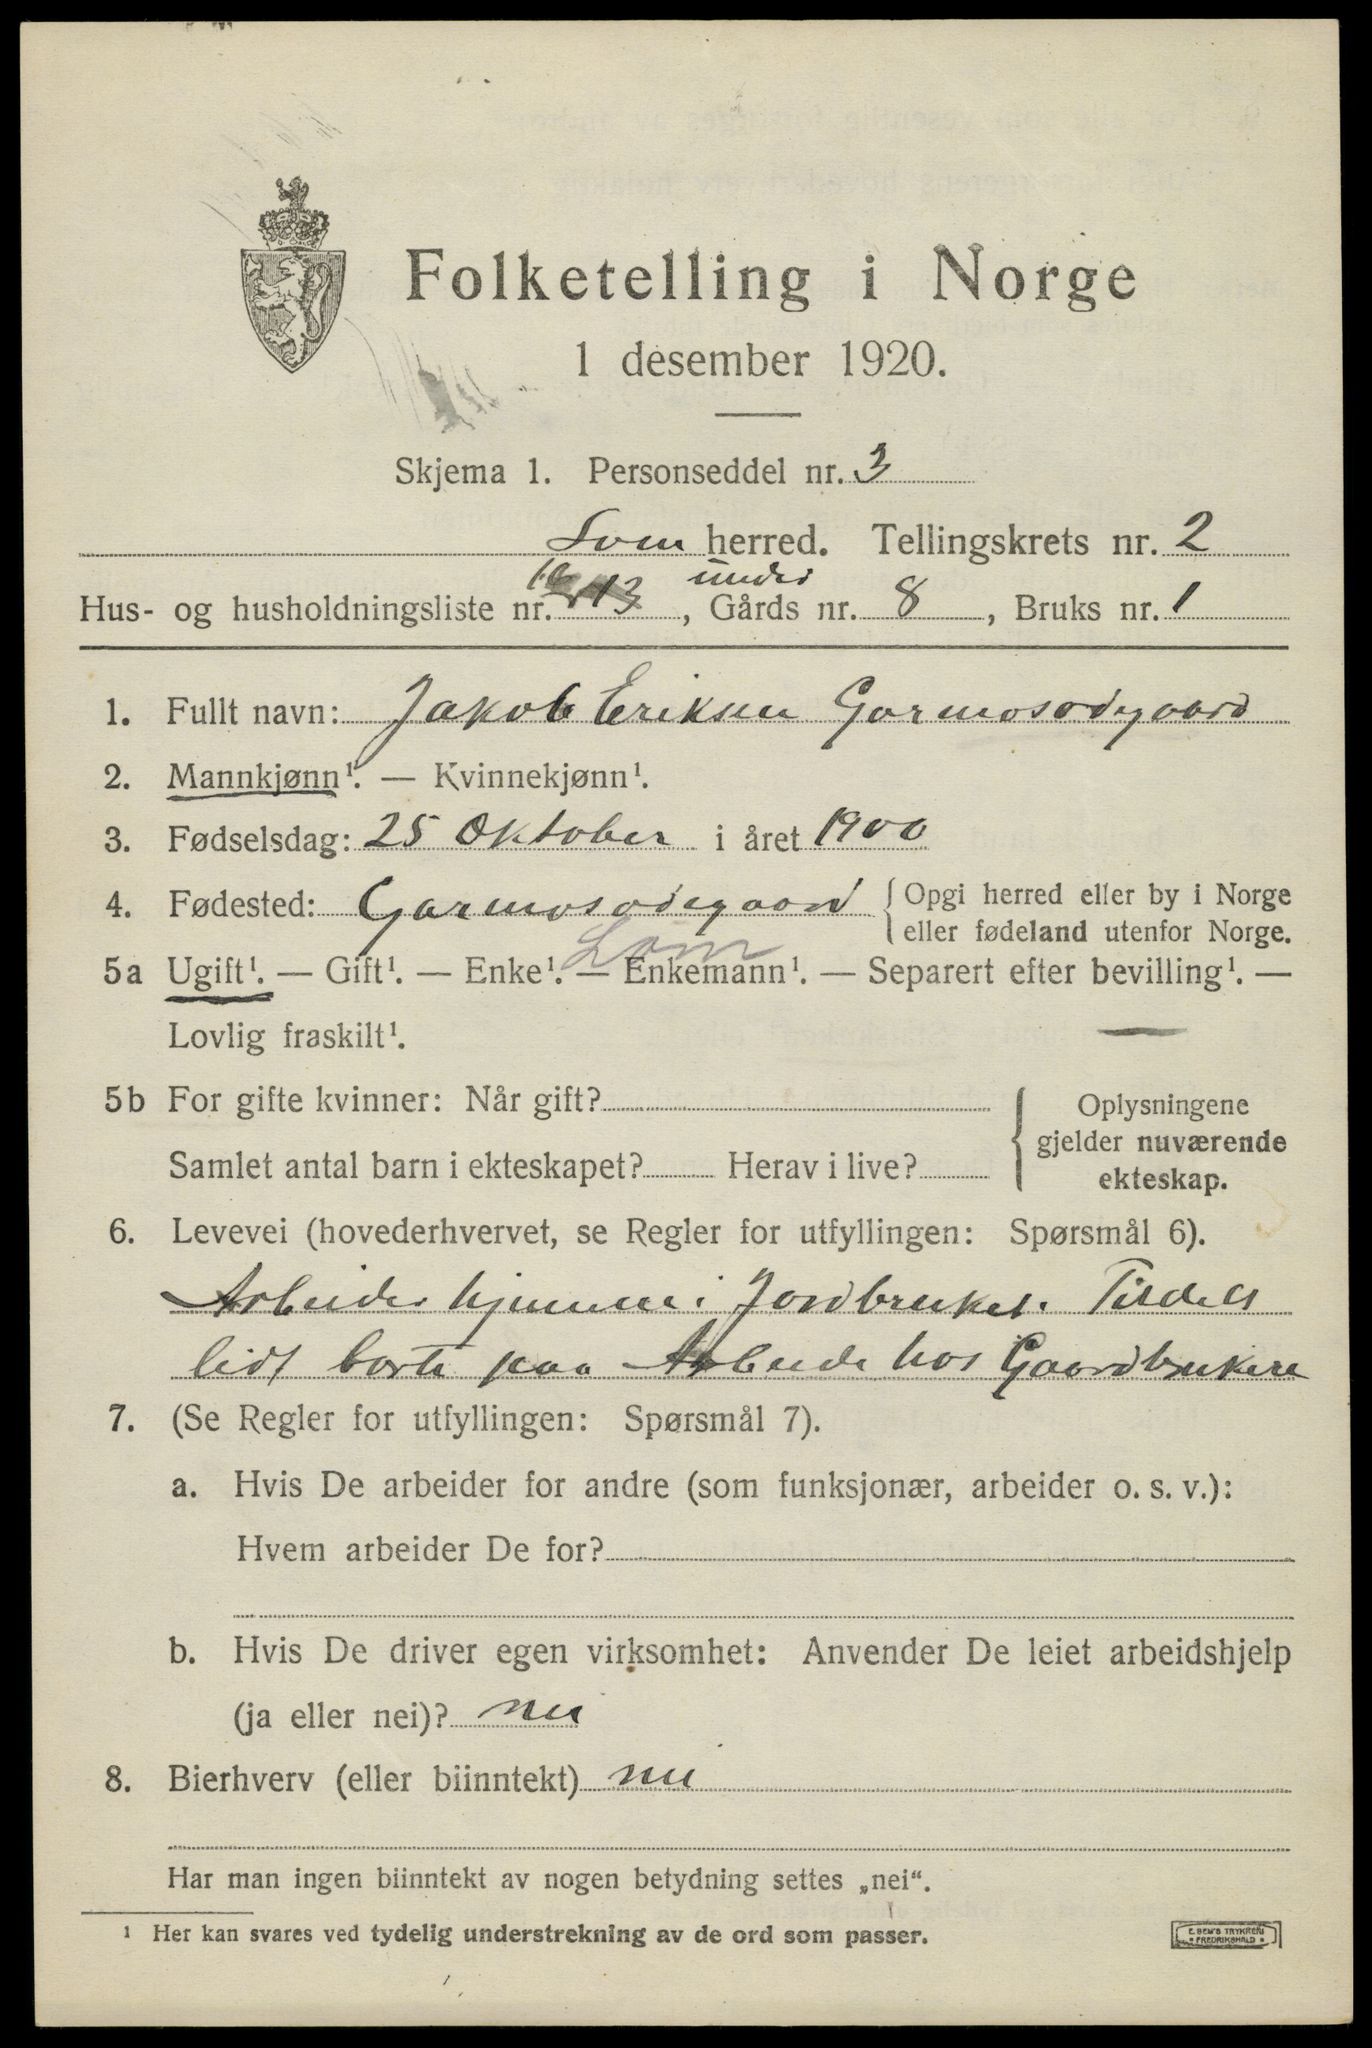 Folketelling i Norge
1 desember 1920.
Skjema 1. Personseddel nr. 3
Lom herred. Tellingskrets nr. 2
under
Hus- og husholdningsliste nr. 13, Gårds nr. 8, Bruks nr. 1
1. Fullt navn: Jakob Eriksen Garmosødegaard
2. Mannkjønn¹. — Kvinnekjønn¹.
3. Fødselsdag: 25 Oktober i året 1900
4. Fødested: Garmosødegaard { Opgi herred eller by i Norge
eller fødeland utenfor Norge.
Lom
5a Ugift¹. — Gift¹. — Enke¹. — Enkemann¹. — Separert efter bevilling¹. —
Lovlig fraskilt¹.
5b For gifte kvinner: Når gift?
Samlet antal barn i ekteskapet? Herav i live?
{ Oplysningene
gjelder nuværende
ekteskap.
6. Levevei (hovederhvervet, se Regler for utfyllingen: Spørsmål 6).
Arbeider hjemme i Jordbruket. Tildels
lidt borte paa Arbeide hos Gaardbrukere
7. (Se Regler for utfyllingen: Spørsmål 7).
a. Hvis De arbeider for andre (som funksjonær, arbeider o. s. v.):
Hvem arbeider De for?
b. Hvis De driver egen virksomhet: Anvender De leiet arbeidshjelp
(ja eller nei)? nei
8. Bierhverv (eller biinntekt) nei
Har man ingen biinntekt av nogen betydning settes „nei“.
¹ Her kan svares ved tydelig understrekning av de ord som passer.
E. SEM'S TRYKKERI
FREDRIKSHALD